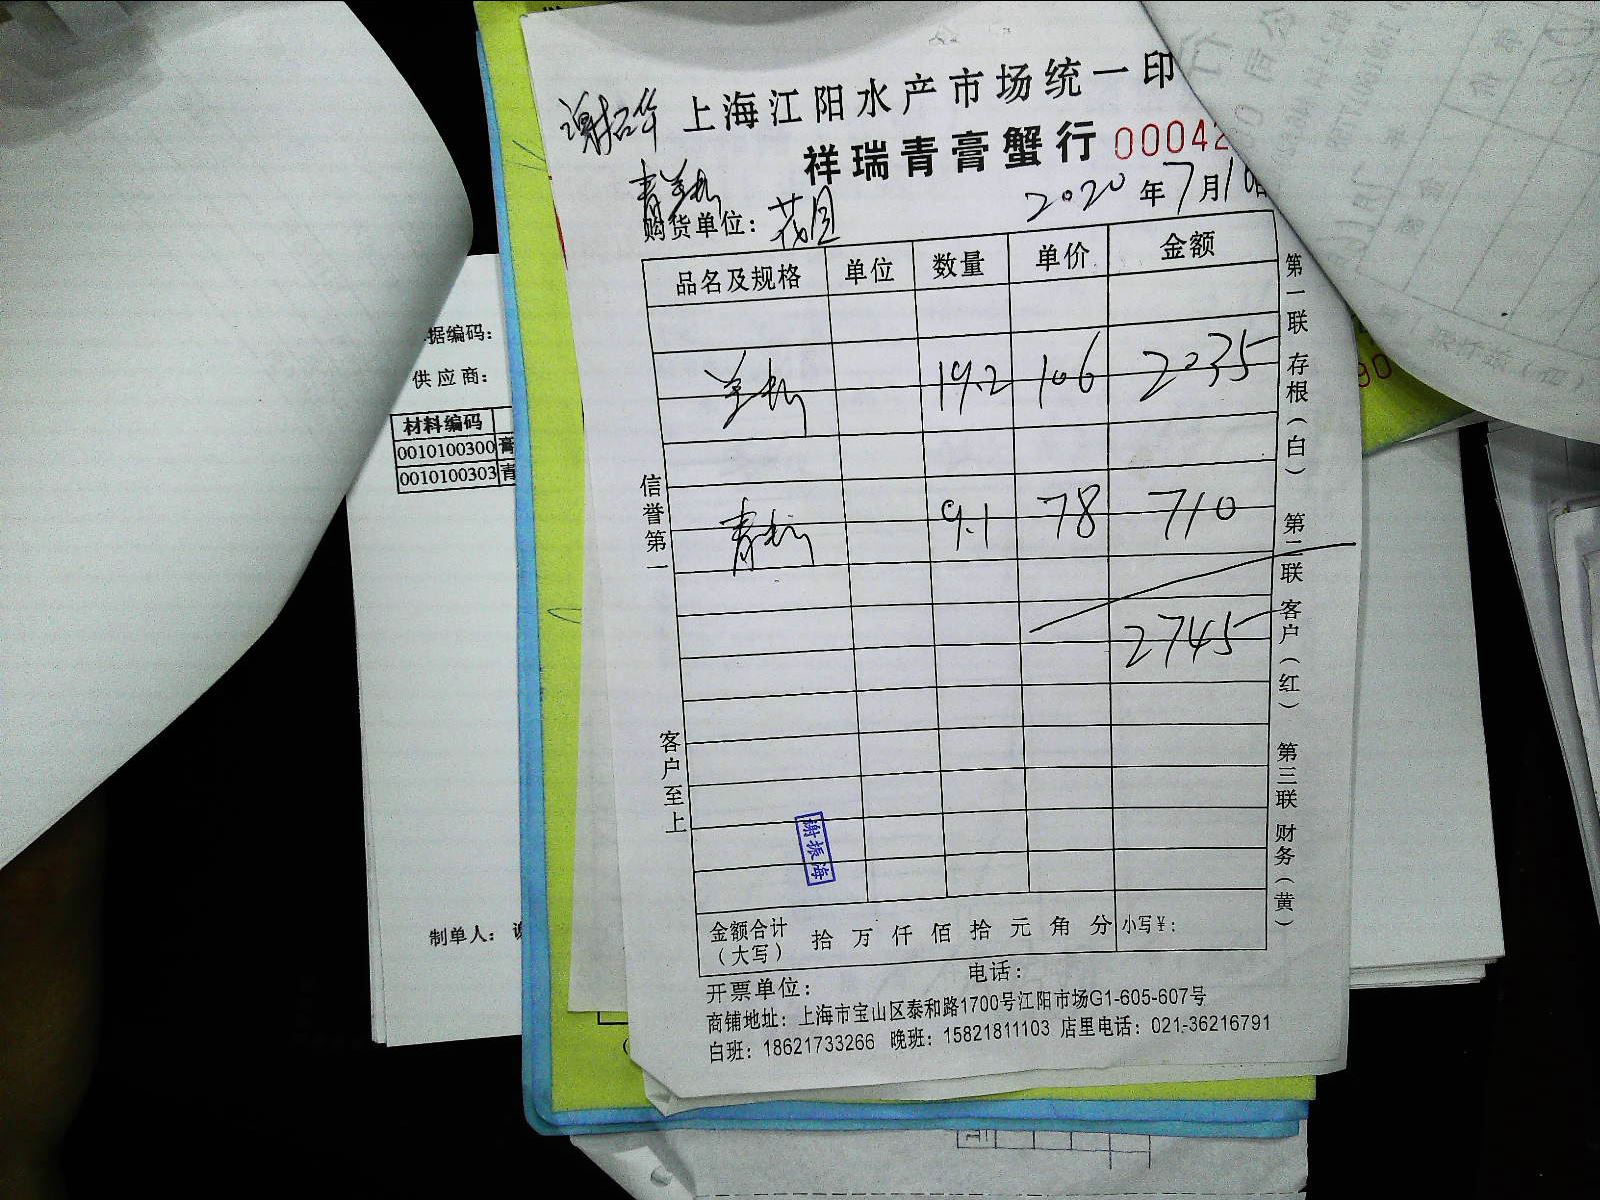 谢招华 上海江阳水产市场统一印
祥瑞青膏蟹行 00042
2020 年 7 月 1
购货单位： 花园
品名及规格 单位 数量 单价 金额
19.2 106 2035
9.1 78 710
2745
信誉第一
客户至上
谢振海
金额合计（大写） 拾 万 仟 佰 拾 元 角 分 小写￥：
开票单位： 电话：
商铺地址：上海市宝山区泰和路1700号江阳市场G1-605-607号
白班：18621733266 晚班：15821811103 店里电话：021-36216791
第一联 存根（白） 第二联 客户（红） 第三联 财务（黄）
据编码：
供应商：
材料编码
0010100300 膏
0010100303 青
制单人：
90